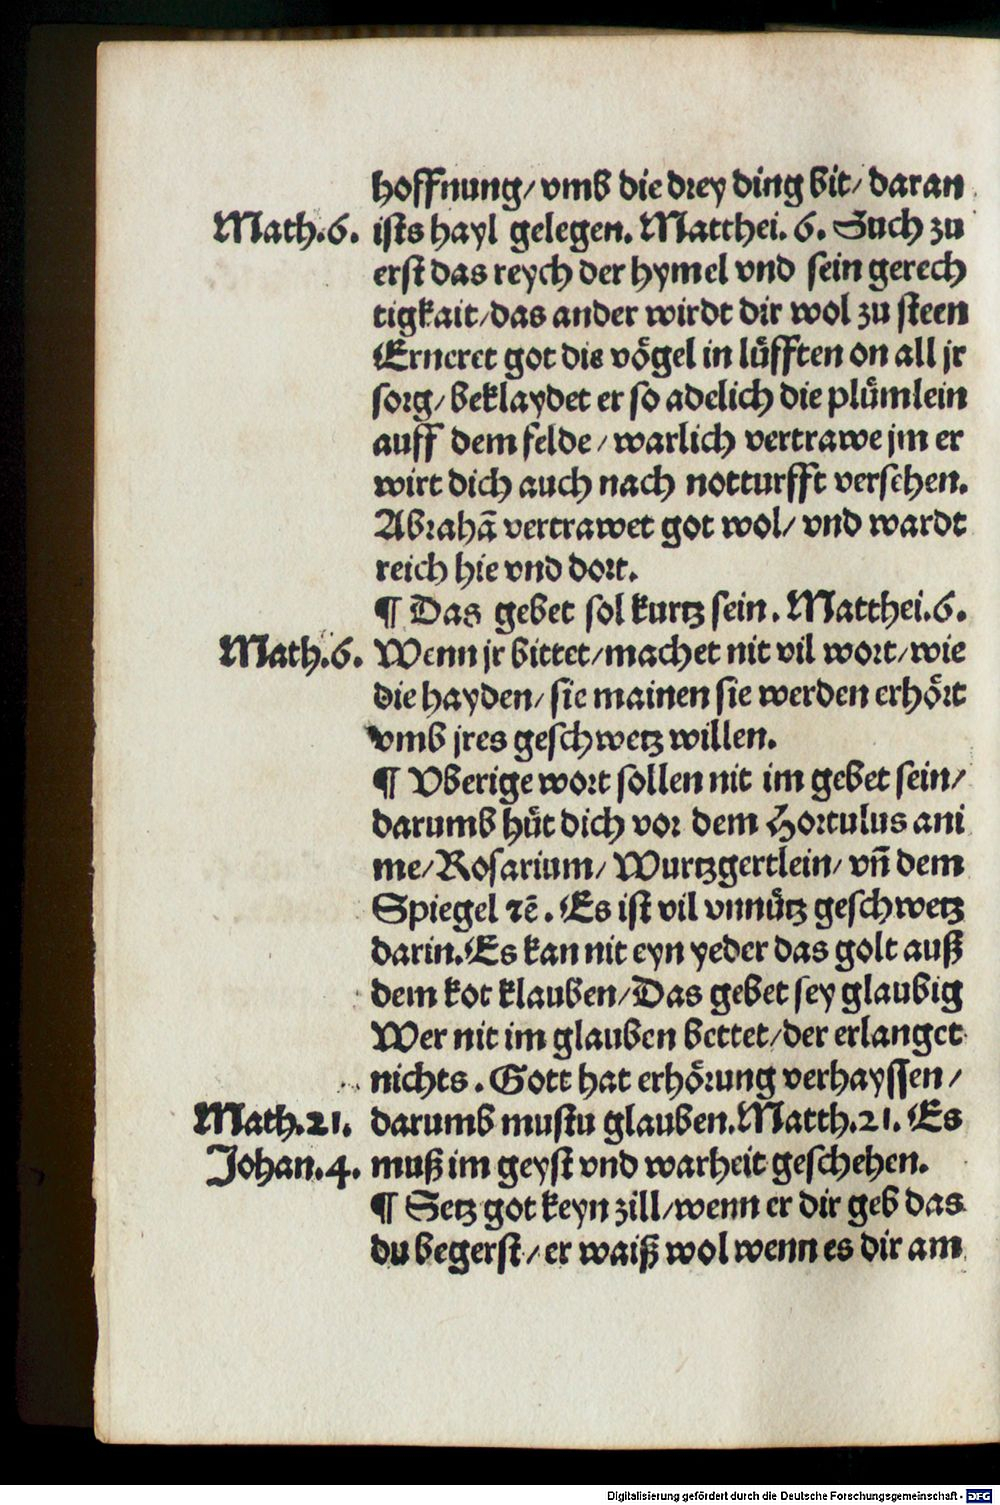 hoffnung/ vmb die drey ding bit/ daran
Math.6. ists hayl gelegen. Matthei. 6. Such zu
erst das reych der hymel vnd sein gerech
tigkait/das ander wirdt dir wol zu steen
Erneret got die vögel in lüfften on all jr
sorg/ beklaydet er so adelich die plümlein
auff dem felde/ warlich vertrawe jm er
wirt dich auch nach notturfft versehen.
Abrahā vertrawet got wol/ vnd wardt
reich hie vnd dort.
¶ Das gebet sol kurtz sein. Matthei.6.
Math.6. Wenn jr bittet/machet nit vil wort/wie
die hayden/ sie mainen sie werden erhört
vmb jres geschwetz willen.
¶ Vberige wort sollen nit im gebet sein/
darumb hüt dich vor dem Hortulus ani
me/ Rosarium/ Wurtzgertlein/ vn̄ dem
Spiegel ⁊ē. Es ist vil vnnütz geschwetz
darin. Es kan nit eyn yeder das golt auß
dem kot klauben/Das gebet sey glaubig
Wer nit im glauben bettet/der erlanget
nichts. Gott hat erhörung verhayssen/
Math.21. darumb mustu glauben. Matth.21. Es
Johan.4. muß im geyst vnd warheit geschehen.
¶ Setz got keyn zill/wenn er dir geb das
du begerst/ er waiß wol wenn es dir am
Digitalisierung gefördert durch die Deutsche Forschungsgemeinschaft - DFG